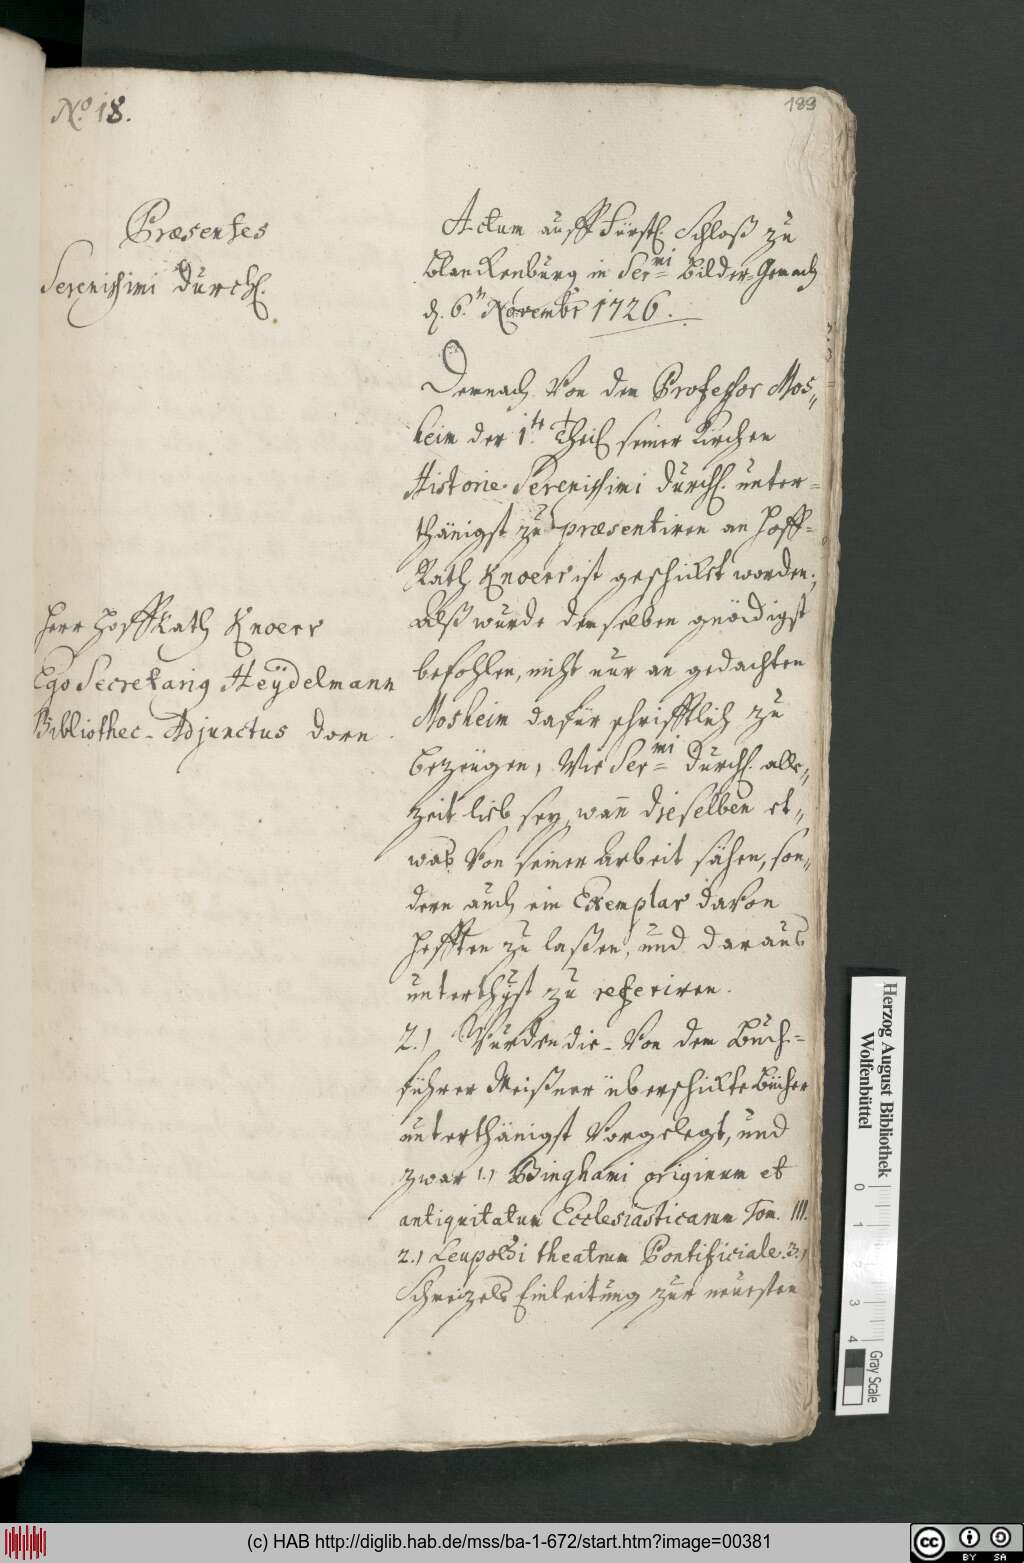 No 18.
189
Præsentes
Serenissimi Durchl.
Herr HoffRath Knoerr
Ego Secretarig Heÿdelmann
Bibliothec-Adjunctus Dorn
Actum auff Fürstl. Schloß zu
Blanckenburg in Ser mi Bilder-Gemach
d. 6.n Novembr 1726.
Demnach von dem Professor Mos=
heim der 1.te Theil seiner Kirchen
Historie Serenissimi Durchl. unter=
thänigst zu præsentiren an Hoff=
Rath Knoerr ist geschickt worden,
Alß wurde demselben gnädigst
befohlen, nicht nur an gedachten
Mosheim dafür schrifftlich zu
bezeugen, wie Ser mi Durchl. alle=
zeit lieb sey, wan dieselben et=
was von seiner Arbeit sähen, son=
dern auch ein Exemplar davon
hefften zu laßen, und daraus
unterthgst zu referiren.
2.) Wurden die von dem Buch=
führer Meißner überschickte Bücher
unterthänigst vorgelegt, und
zwar 1.) Binghami originum et
antiquitatum Ecclesiasticarum Tom. III.
2.) Leupoldi theatrum Pontificiale. 3.)
Einleitung zur neuesten
Herzog August Bibliothek
Wolfenbüttel
0 1 2 3 4
Gray Scale
(c) HAB http://diglib.hab.de/mss/ba-1-672/start.htm?image=00381
cc BY SA